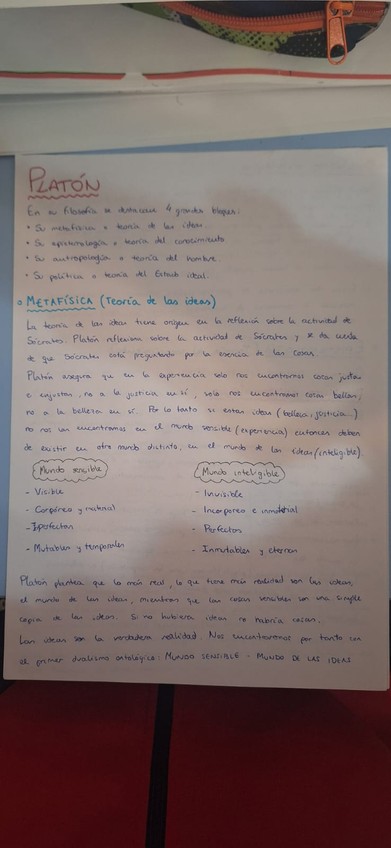 PLATÓN
En su filosofía se destacan 4 grandes bloques:
• Su metafísica o teoría de las ideas.
• Su epistemología o teoría del conocimiento
• Su antropología o teoría del hombre
• Su política o teoría del Estado ideal.
METAFÍSICA (Teoría de las ideas)
La teoría de las ideas tiene origen en la reflexión sobre la actividad de
Sócrates. Platón reflexiona sobre la actividad de Sócrates y se da cuenta
de que Sócrates está preguntando por la esencia de las cosas.
Platón asegura que en la experiencia solo nos encontramos cosas justas
e injustas, no a la justicia en sí, solo nos encontramos cosas bellas,
no a la belleza en sí. Por lo tanto si estas ideas (belleza, justicia...)
no nos las encontramos en el mundo sensible (experiencia) entonces deben
de existir en otro mundo distinto, en el mundo de las ideas (inteligible).
Mundo sensible Mundo inteligible
- Visible - Invisible
- Corpóreo y material - Incorporeo e inmaterial
- Imperfectas - Perfectas
- Mutables y temporales - Inmutables y eternas
Platón plantea que lo más real, lo que tiene más realidad son las ideas,
el mundo de las ideas, mientras que las cosas sensibles son una simple
copia de las ideas. Si no hubiera ideas no habría cosas.
Las ideas son la verdadera realidad. Nos encontraremos por tanto con
el primer dualismo ontológico: MUNDO SENSIBLE - MUNDO DE LAS IDEAS